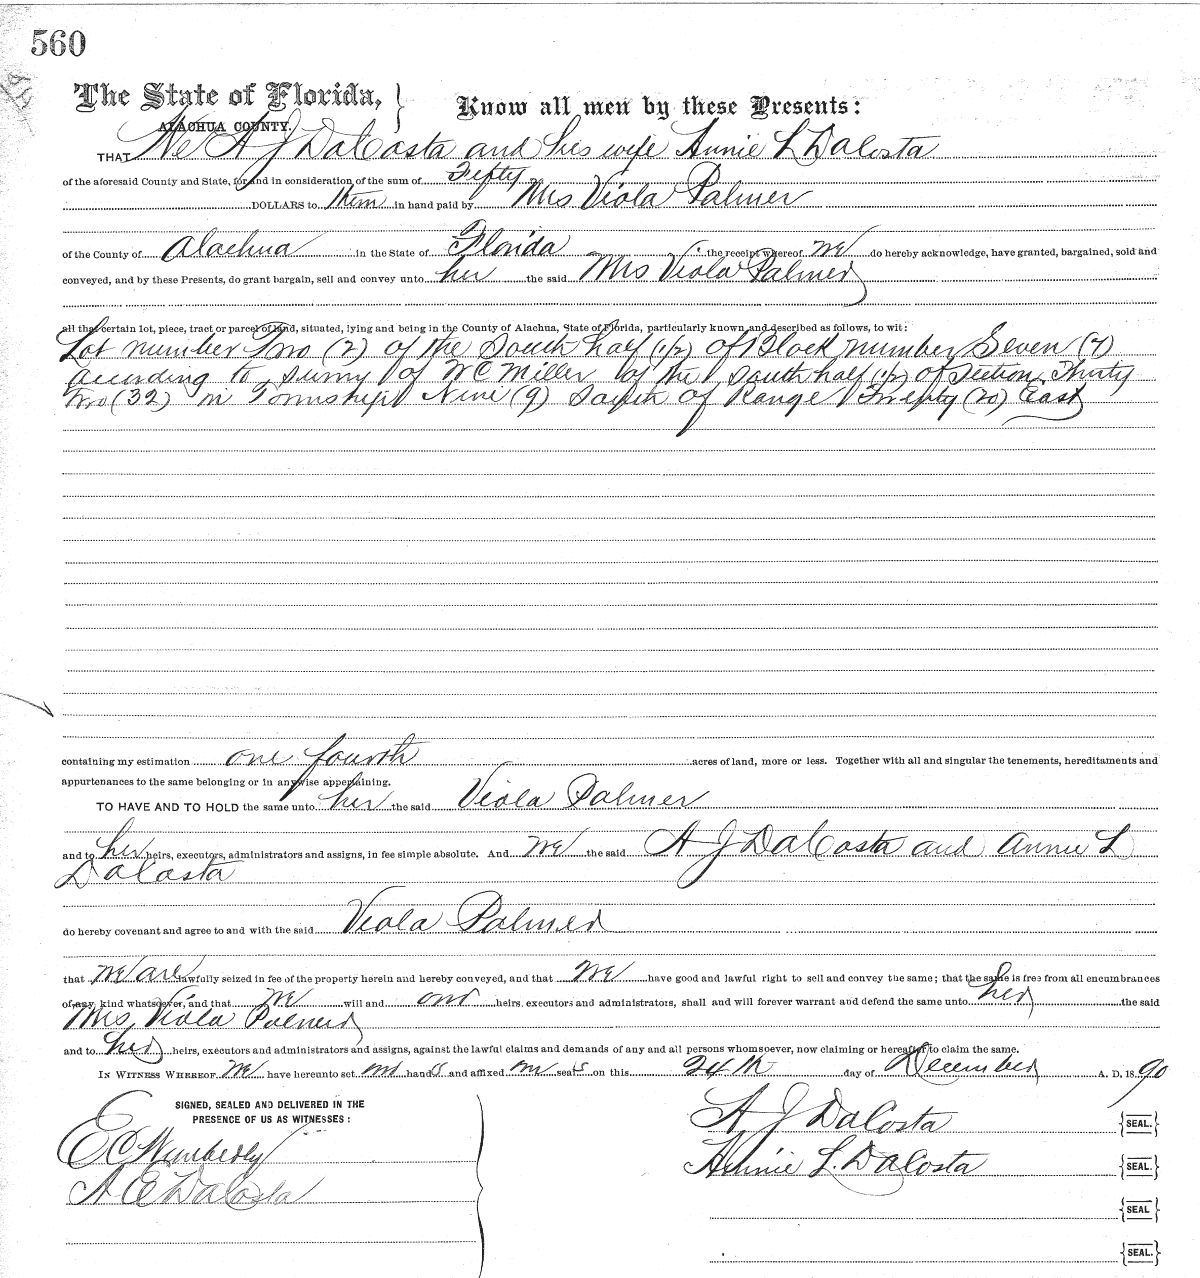 560
The State of Florida, } Know all men by these Presents:
ALACHUA COUNTY.
THAT We A J DaCosta and his wife Annie L DaCosta
of the aforesaid County and State, for and in consideration of the sum of Fifty
DOLLARS to them in hand paid by Mrs Viola Palmer
of the County of Alachua in the State of Florida, the receipt whereof we do hereby acknowledge, have granted, bargained, sold and
conveyed, and by these Presents, do grant bargain, sell and convey unto her the said Mrs Viola Palmer
all that certain lot, piece, tract or parcel of land, situated, lying and being in the County of Alachua, State of Florida, particularly known and described as follows, to wit:
Lot number Two (2) of the South half (1/2) of Block number Seven (7)
according to survey of W C Miller of the south half (1/2) of Section Thirty
Two (32) in Township Nine (9) South of Range Twenty (20) East
containing my estimation one fourth acres of land, more or less. Together with all and singular the tenements, hereditaments and
appurtenances to the same belonging or in anywise appertaining.
TO HAVE AND TO HOLD the same unto her the said Viola Palmer
and to her heirs, executors, administrators and assigns, in fee simple absolute. And We the said A J DaCosta and Annie L
DaCosta
do hereby covenant and agree to and with the said Viola Palmer
that we are lawfully seized in fee of the property herein and hereby conveyed, and that we have good and lawful right to sell and convey the same; that the same is free from all encumbrances
of any kind whatsoever, and that we will and our heirs, executors and administrators, shall and will forever warrant and defend the same unto her the said
Mrs Viola Palmer
and to her heirs, executors and administrators and assigns, against the lawful claims and demands of any and all persons whomsoever, now claiming or hereafter to claim the same.
IN WITNESS WHEREOF We have hereunto set our hands and affixed our seals on this 24th day of December A. D. 1890
SIGNED, SEALED AND DELIVERED IN THE
PRESENCE OF US AS WITNESSES:
A J DaCosta {SEAL.}
E C Wimberly
Annie L. DaCosta {SEAL.}
A E DaCosta
{SEAL}
{SEAL.}